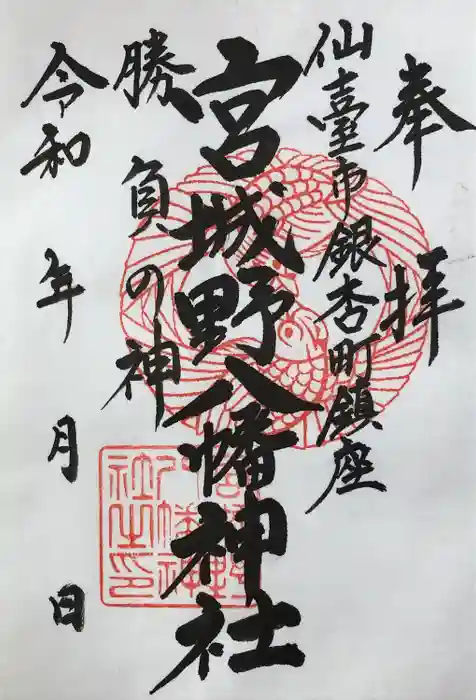 奉拝
仙臺市銀杏町鎮座
宮城野八幡神社
勝負の神
令和 年 月 日